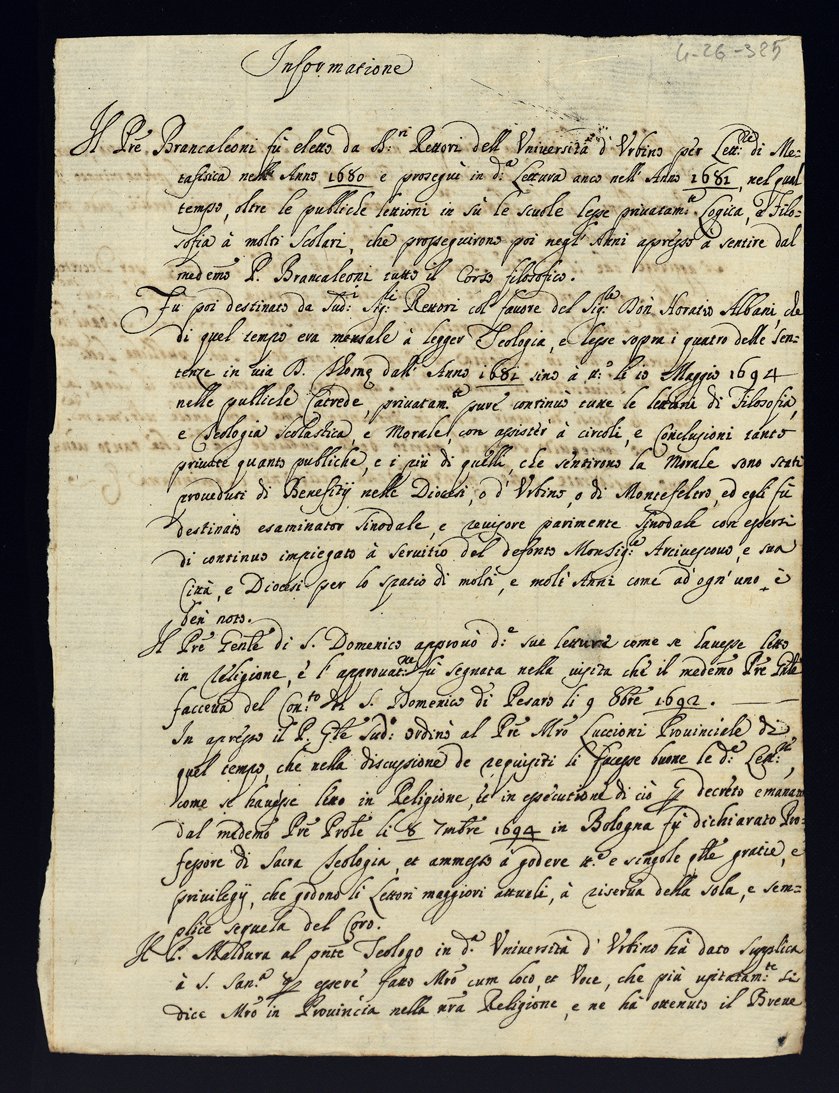 4-26-385
Informatione
Il Prē Brancaleoni fù eletto da SS:ri Rettori dell' Vniversità d'Vrbino per Lett:re di Me=
tafisica nell' Anno 1680 e proseguì in d:a Lettura anco nell' Anno 1681, nel qual
tempo, oltre le publiche lezzioni in sù le scuole lesse privatam:te Logica, e Filo=
sofia à molti Scolari, che prosseguirono poi negl' Anni apresso à sentire dal
medemo P. Brancaleoni tutto il Corso filosofico.
Fù poi destinato da Sud:i Sig:ri Rettori col favore del Sig:re Don Horatio Albani, che
di quel tempo era mensale à legger Teologia, e lesse sopra i quatro delle Sen=
tenze in via D. Thomę dall' Anno 1681 sino à tt:o li 10 Maggio 1694
nelle publiche Catrede, privatam:te pure continuò tutte le letture di Filosofia,
e Teologia Scolastica, e Morale, con assister à circoli, e Conclusioni tanto
private quanto publiche, e i più di quelli, che sentirono la Morale sono stati
proveduti di Benefitÿ nelle Diocesi, o d'Vrbino, o di Montefeltro, ed egli fù
destinato esaminator Sinodale, e revisore parimente Sinodale con essersi
di continuo impiegato à servitio del defonto Monsig:re Arcivescovo, e sua
Città, e Diocesi per lo spatio di molti, e molt' Anni come ad' ogn' uno è
ben noto.
Il Prē Gentle di S. Domenico approvò d:e sue letture come se havesse letto
in religione, e l'approvat:ne fù segnata nella visita che il medemo Prē Gntle
faceva del Con:to di S. Domenico di Pesaro li 9 8bre 1692.
In apresso il P. Gtle Sud:o ordinò al Prē Mrō Luccioni Provinciale di
quel tempo, che nella discussione de requisiti li facesse buone le d:e Lett:re,
come se havesse letto in Religione, et in essecutione di ciò ꝑ decreto emanato
dal medemo Prē Prōle li 8 7mbre 1694 in Bologna fù dichiarato Pro=
fessore di Sacra Teologia, et ammesso à godere tt:e e singole qlle gratie, e
privilegÿ, che godono li Lettori maggiori attuali, à riserva della sola, e sem=
plice sequela del Coro.
Il P. Maltura al pnte Teologo in d:a Vniversità d'Vrbino hà dato supplica
à S. San:a ꝑ essere fatto Mrō cum loco, et Voce, che più usitatam:te si
dice Mrō in Provincia nella nrā Religione, e ne hà ottenuto il Breve